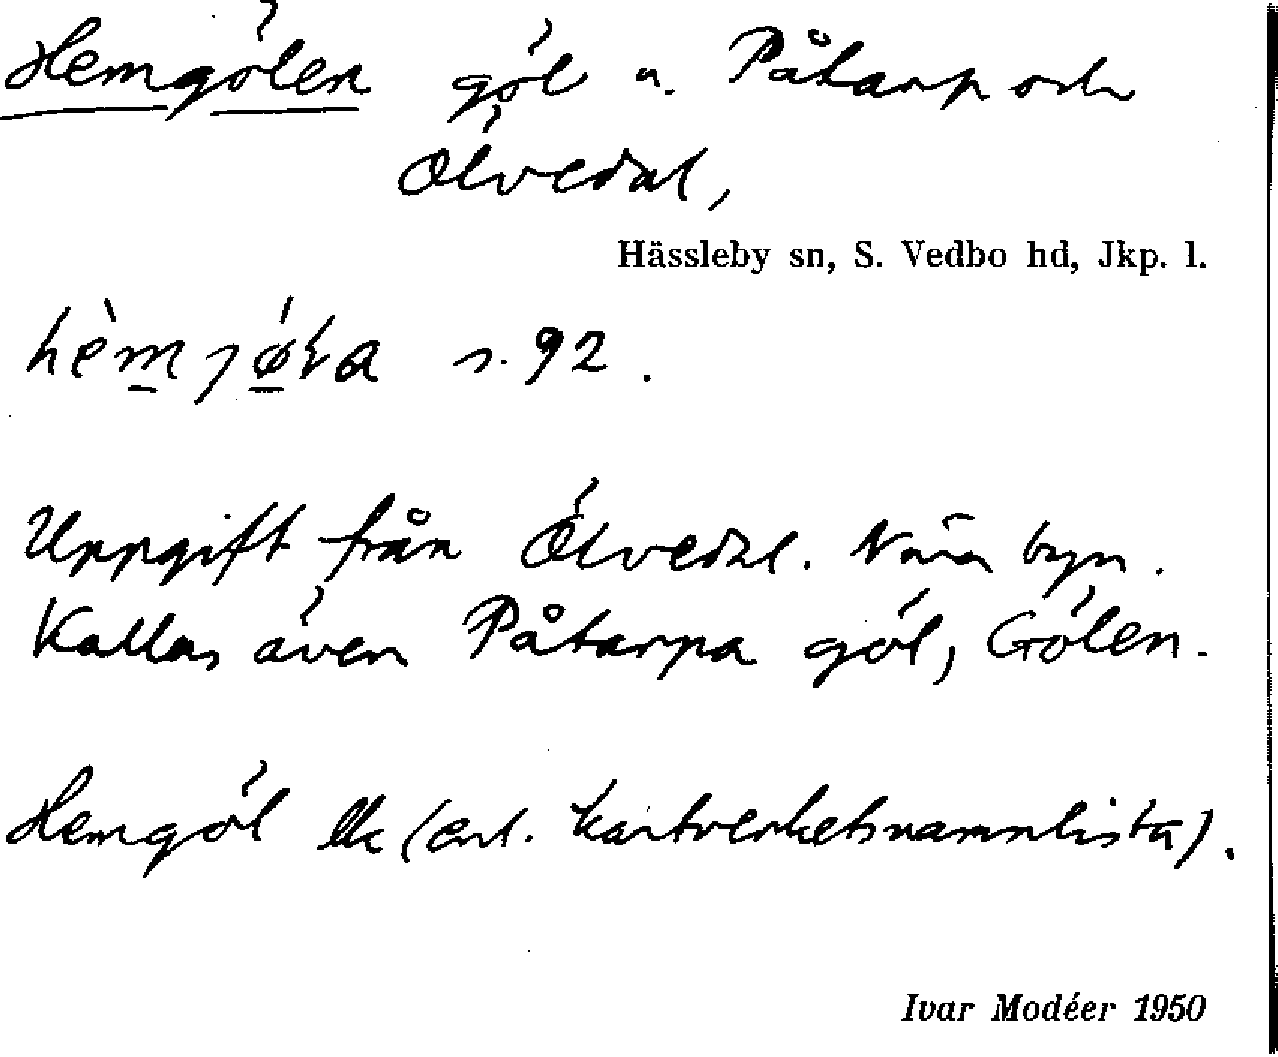 Hemgölen göl n. Påtarp och
Ölvedal,
Hässleby sn, S. Vedbo hd, Jkp. l.
s. 92.
Uppgift från Ölvedal. Nära byn.
Kallas även Påtarpa göl, Gölen.
Hemgöl (enl. kartverketsnamnlista).
Ivar Modéer 1950